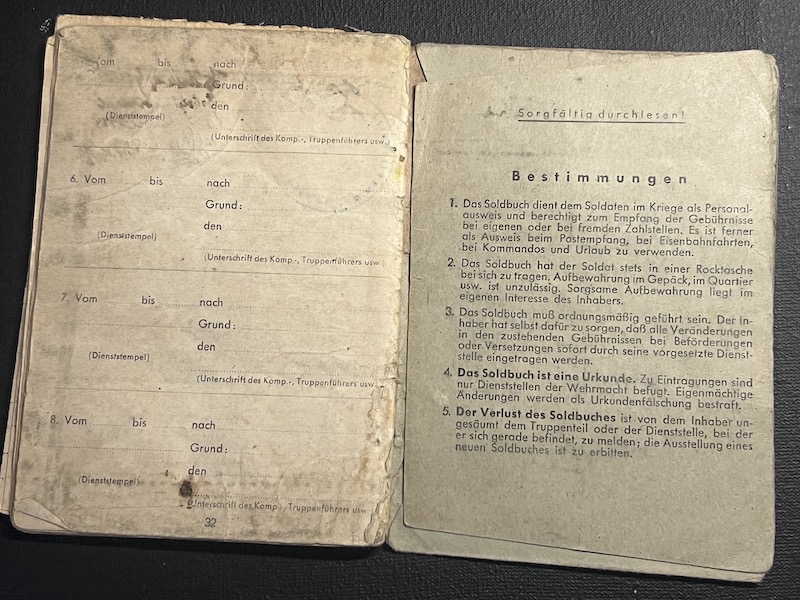 Vom bis nach
Grund:
den
(Dienststempel)
(Unterschrift des Komp.-, Truppenführers usw.)
6. Vom bis nach
Grund:
den
(Dienststempel)
(Unterschrift des Komp.-, Truppenführers usw.)
7. Vom bis nach
Grund:
den
(Dienststempel)
(Unterschrift des Komp.-, Truppenführers usw.)
8. Vom bis nach
Grund:
den
(Dienststempel)
(Unterschrift des Komp.-, Truppenführers usw.)
32
Sorgfältig durchlesen!
Bestimmungen
1. Das Soldbuch dient dem Soldaten im Kriege als Personal-
ausweis und berechtigt zum Empfang der Gebührnisse
bei eigenen oder bei fremden Zahlstellen. Es ist ferner
als Ausweis beim Postempfang, bei Eisenbahnfahrten,
bei Kommandos und Urlaub zu verwenden.
2. Das Soldbuch hat der Soldat stets in einer Rocktasche
bei sich zu tragen. Aufbewahrung im Gepäck, im Quartier
usw. ist unzulässig. Sorgsame Aufbewahrung liegt im
eigenen Interesse des Inhabers.
3. Das Soldbuch muß ordnungsmäßig geführt sein. Der In-
haber hat selbst dafür zu sorgen, daß alle Veränderungen
in den zustehenden Gebührnissen bei Beförderungen
oder Versetzungen sofort durch seine vorgesetzte Dienst-
stelle eingetragen werden.
4. Das Soldbuch ist eine Urkunde. Zu Eintragungen sind
nur Dienststellen der Wehrmacht befugt. Eigenmächtige
Änderungen werden als Urkundenfälschung bestraft.
5. Der Verlust des Soldbuches ist von dem Inhaber un-
gesäumt dem Truppenteil oder der Dienststelle, bei der
er sich gerade befindet, zu melden; die Ausstellung eines
neuen Soldbuches ist zu erbitten.